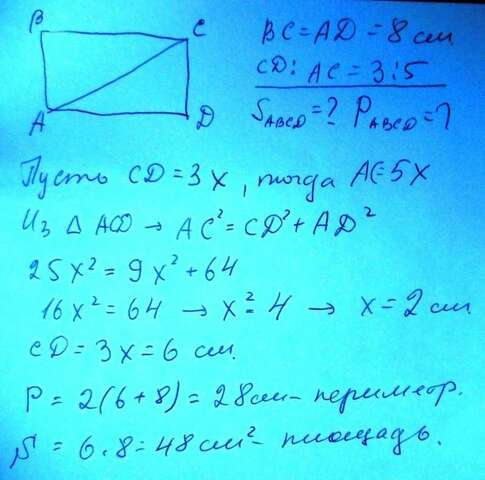 B
C
A
D
BC = AD = 8 см
CD : AC = 3 : 5
S ABCD = ? P ABCD = ?
Пусть CD = 3x, тогда AC = 5x
Из △ ACD → AC² = CD² + AD²
25x² = 9x² + 64
16x² = 64 → x² = 4 → x = 2 см
CD = 3x = 6 см.
P = 2(6+8) = 28 см – периметр.
S = 6 · 8 = 48 см² – площадь.